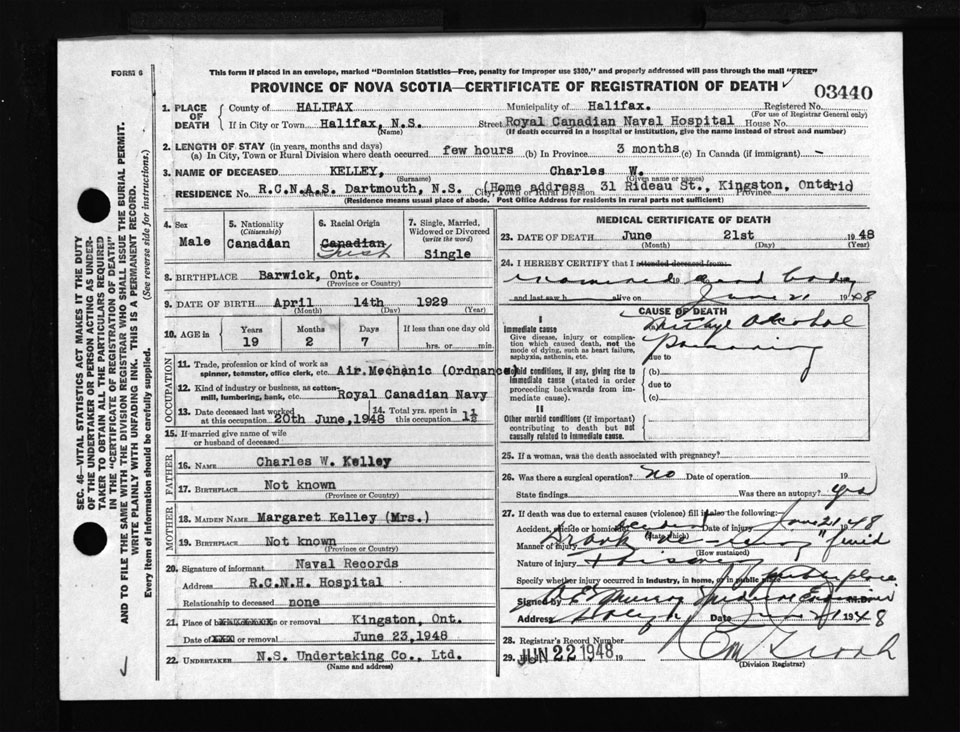 FORM 6
This form if placed in an envelope, marked "Dominion Statistics—Free, penalty for improper use $300," and properly addressed will pass through the mail "FREE"
PROVINCE OF NOVA SCOTIA—CERTIFICATE OF REGISTRATION OF DEATH
03440
1. PLACE OF DEATH
County of HALIFAX Municipality of Halifax. Registered No.
(For use of Registrar General only)
If in City or Town Halifax, N.S. Street Royal Canadian Naval Hospital House No.
(Name) (If death occurred in a hospital or institution, give the name instead of street and number)
2. LENGTH OF STAY (in years, months and days)
(a) In City, Town or Rural Division where death occurred few hours (b) In Province 3 months (c) In Canada (if immigrant) -
3. NAME OF DECEASED KELLEY, Charles W.
(Surname) (Given name or names)
RESIDENCE No. R.C.N.A.S. Dartmouth, N.S. (Home address 31 Rideau St., Kingston, Ontario
(Residence means usual place of abode. Post Office Address for residents in rural parts not sufficient)
4. Sex
Male
5. Nationality
(Citizenship)
Canadian
6. Racial Origin
Canadian
Irish
7. Single, Married, Widowed or Divorced
(write the word)
Single
8. BIRTHPLACE Barwick, Ont.
(Province or Country)
9. DATE OF BIRTH April 14th 1929
(Month) (Day) (Year)
10. AGE in Years Months Days If less than one day old
19 2 7 hrs. or min.
OCCUPATION
11. Trade, profession or kind of work as spinner, teamster, office clerk, etc. Air.Mechanic (Ordnance)
12. Kind of industry or business, as cotton-mill, lumbering, bank, etc. Royal Canadian Navy
13. Date deceased last worked at this occupation 20th June, 1948
14. Total yrs. spent in this occupation 1½
15. If married give name of wife or husband of deceased
FATHER
16. NAME Charles W. Kelley
17. BIRTHPLACE Not known
(Province or Country)
MOTHER
18. MAIDEN NAME Margaret Kelley (Mrs.)
19. BIRTHPLACE Not known
(Province or Country)
20. Signature of informant Naval Records
Address R.C.N.H. Hospital
Relationship to deceased none
21. Place of or removal Kingston, Ont.
Date of or removal June 23,1948
22. UNDERTAKER N.S. Undertaking Co., Ltd.
(Name and address)
MEDICAL CERTIFICATE OF DEATH
23. DATE OF DEATH June 21st 1948
(Month) (Day) (Year)
24. I HEREBY CERTIFY that I attended deceased from
examined dead body
and last saw h alive on June 21 1948
CAUSE OF DEATH
I
Immediate cause
Give disease, injury or complication which caused death, not the mode of dying, such as heart failure, asphyxia, asthenia, etc.
Methyl Alcohol
Poisoning
due to
Morbid conditions, if any, giving rise to immediate cause (stated in order proceeding backwards from immediate cause).
(b)
due to
(c)
II
Other morbid conditions (if important) contributing to death but not causally related to immediate cause.
25. If a woman, was the death associated with pregnancy?
26. Was there a surgical operation? no Date of operation 19
State findings Was there an autopsy? yes
27. If death was due to external causes (violence) fill in also the following:
Accident, suicide or homicide Accident Date of injury June 21 1948
(State which)
Manner of injury Drank fluid
(How sustained)
Nature of injury Poisoning
Specify whether injury occurred in industry, in home, or in public place
Signed by Medical Examiner M.D.
Address Date June 21 1948
28. Registrar's Record Number
29. JUN 22 1948 19
(Division Registrar)
SEC. 46—VITAL STATISTICS ACT MAKES IT THE DUTY
OF THE UNDERTAKER OR PERSON ACTING AS UNDER-
TAKER TO OBTAIN ALL THE PARTICULARS REQUIRED
IN THE "CERTIFICATE OF REGISTRATION OF DEATH"
AND TO FILE THE SAME WITH THE DIVISION REGISTRAR WHO SHALL ISSUE THE BURIAL PERMIT.
WRITE PLAINLY WITH UNFADING INK. THIS IS A PERMANENT RECORD.
Every item of information should be carefully supplied. (See reverse side for instructions.)